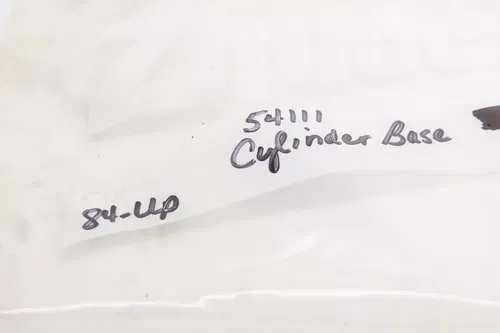 54111
Cylinder Base
84-up